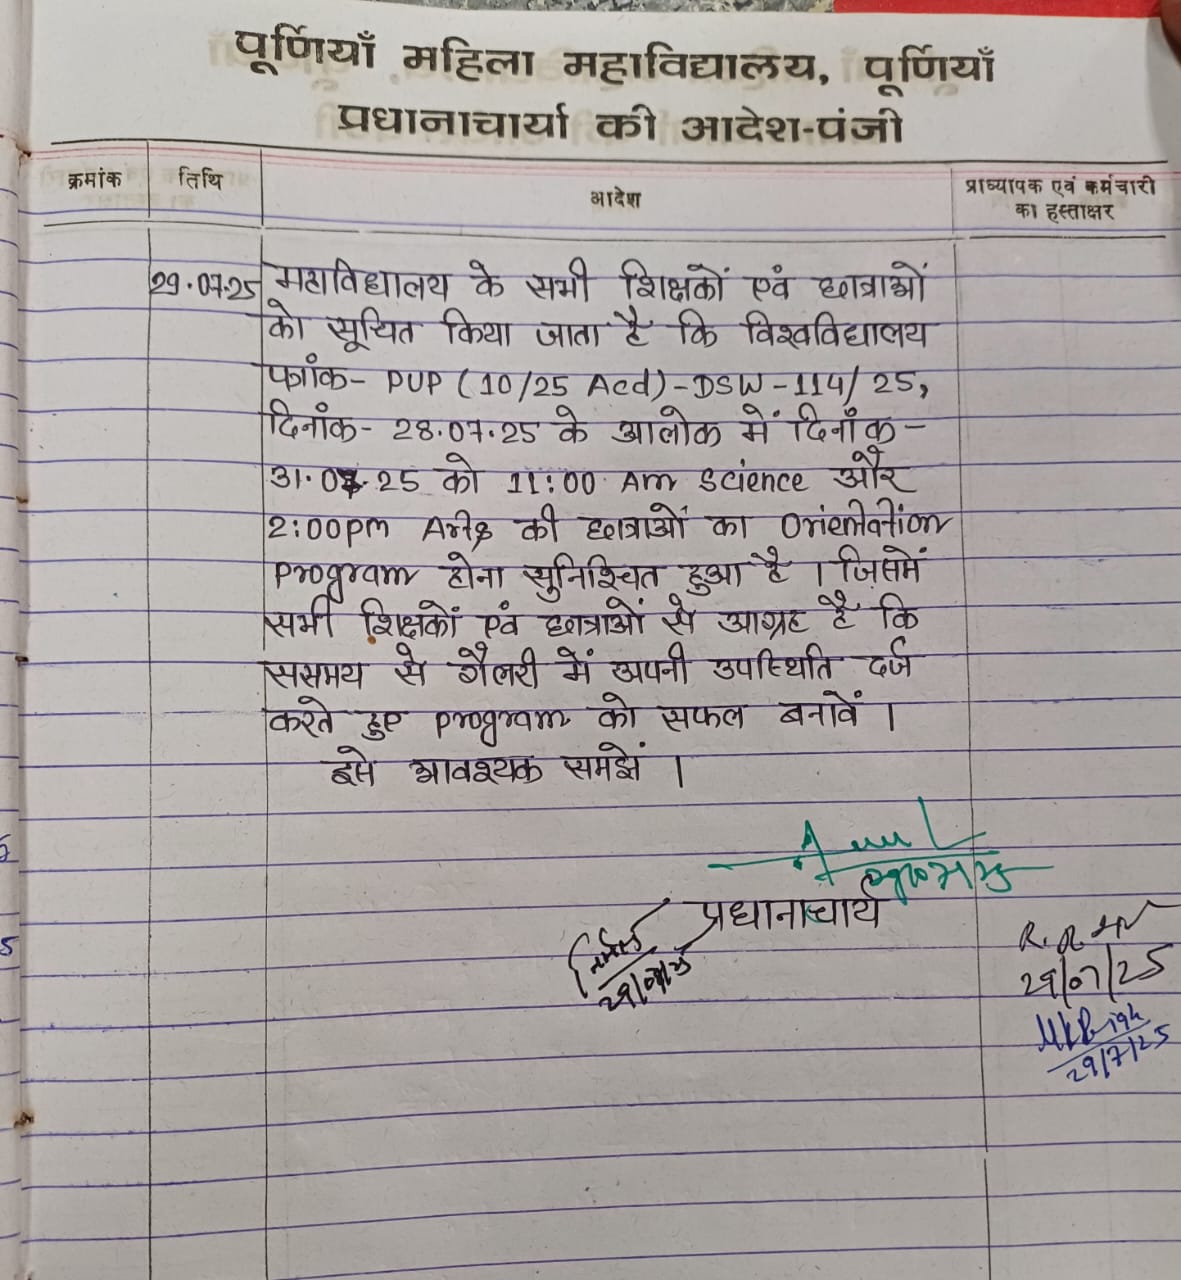 पूर्णियाँ महिला महाविद्यालय, पूर्णियाँ
प्रधानाचार्या की आदेश-पंजी
क्रमांक तिथि आदेश प्राध्यापक एवं कर्मचारी
का हस्ताक्षर
29.07.25 महाविद्यालय के सभी शिक्षकों एवं छात्राओं
को सूचित किया जाता है कि विश्वविद्यालय
पत्रांक- PUP (10/25 Acd)-DSW-114/25,
दिनांक- 28.07.25 के आलोक में दिनाँक-
31.07.25 को 11:00 Am Science और
2:00pm Arts की छात्राओं का Orientation
program होना सुनिश्चित हुआ है । जिसमें
सभी शिक्षकों एवं छात्राओं से आग्रह है कि
ससमय से गैलरी में अपनी उपस्थिति दर्ज
करते हुए program को सफल बनावें ।
इसे आवश्यक समझें ।
प्रधानाचार्य
29/07/25
29/07/25
29/7/25